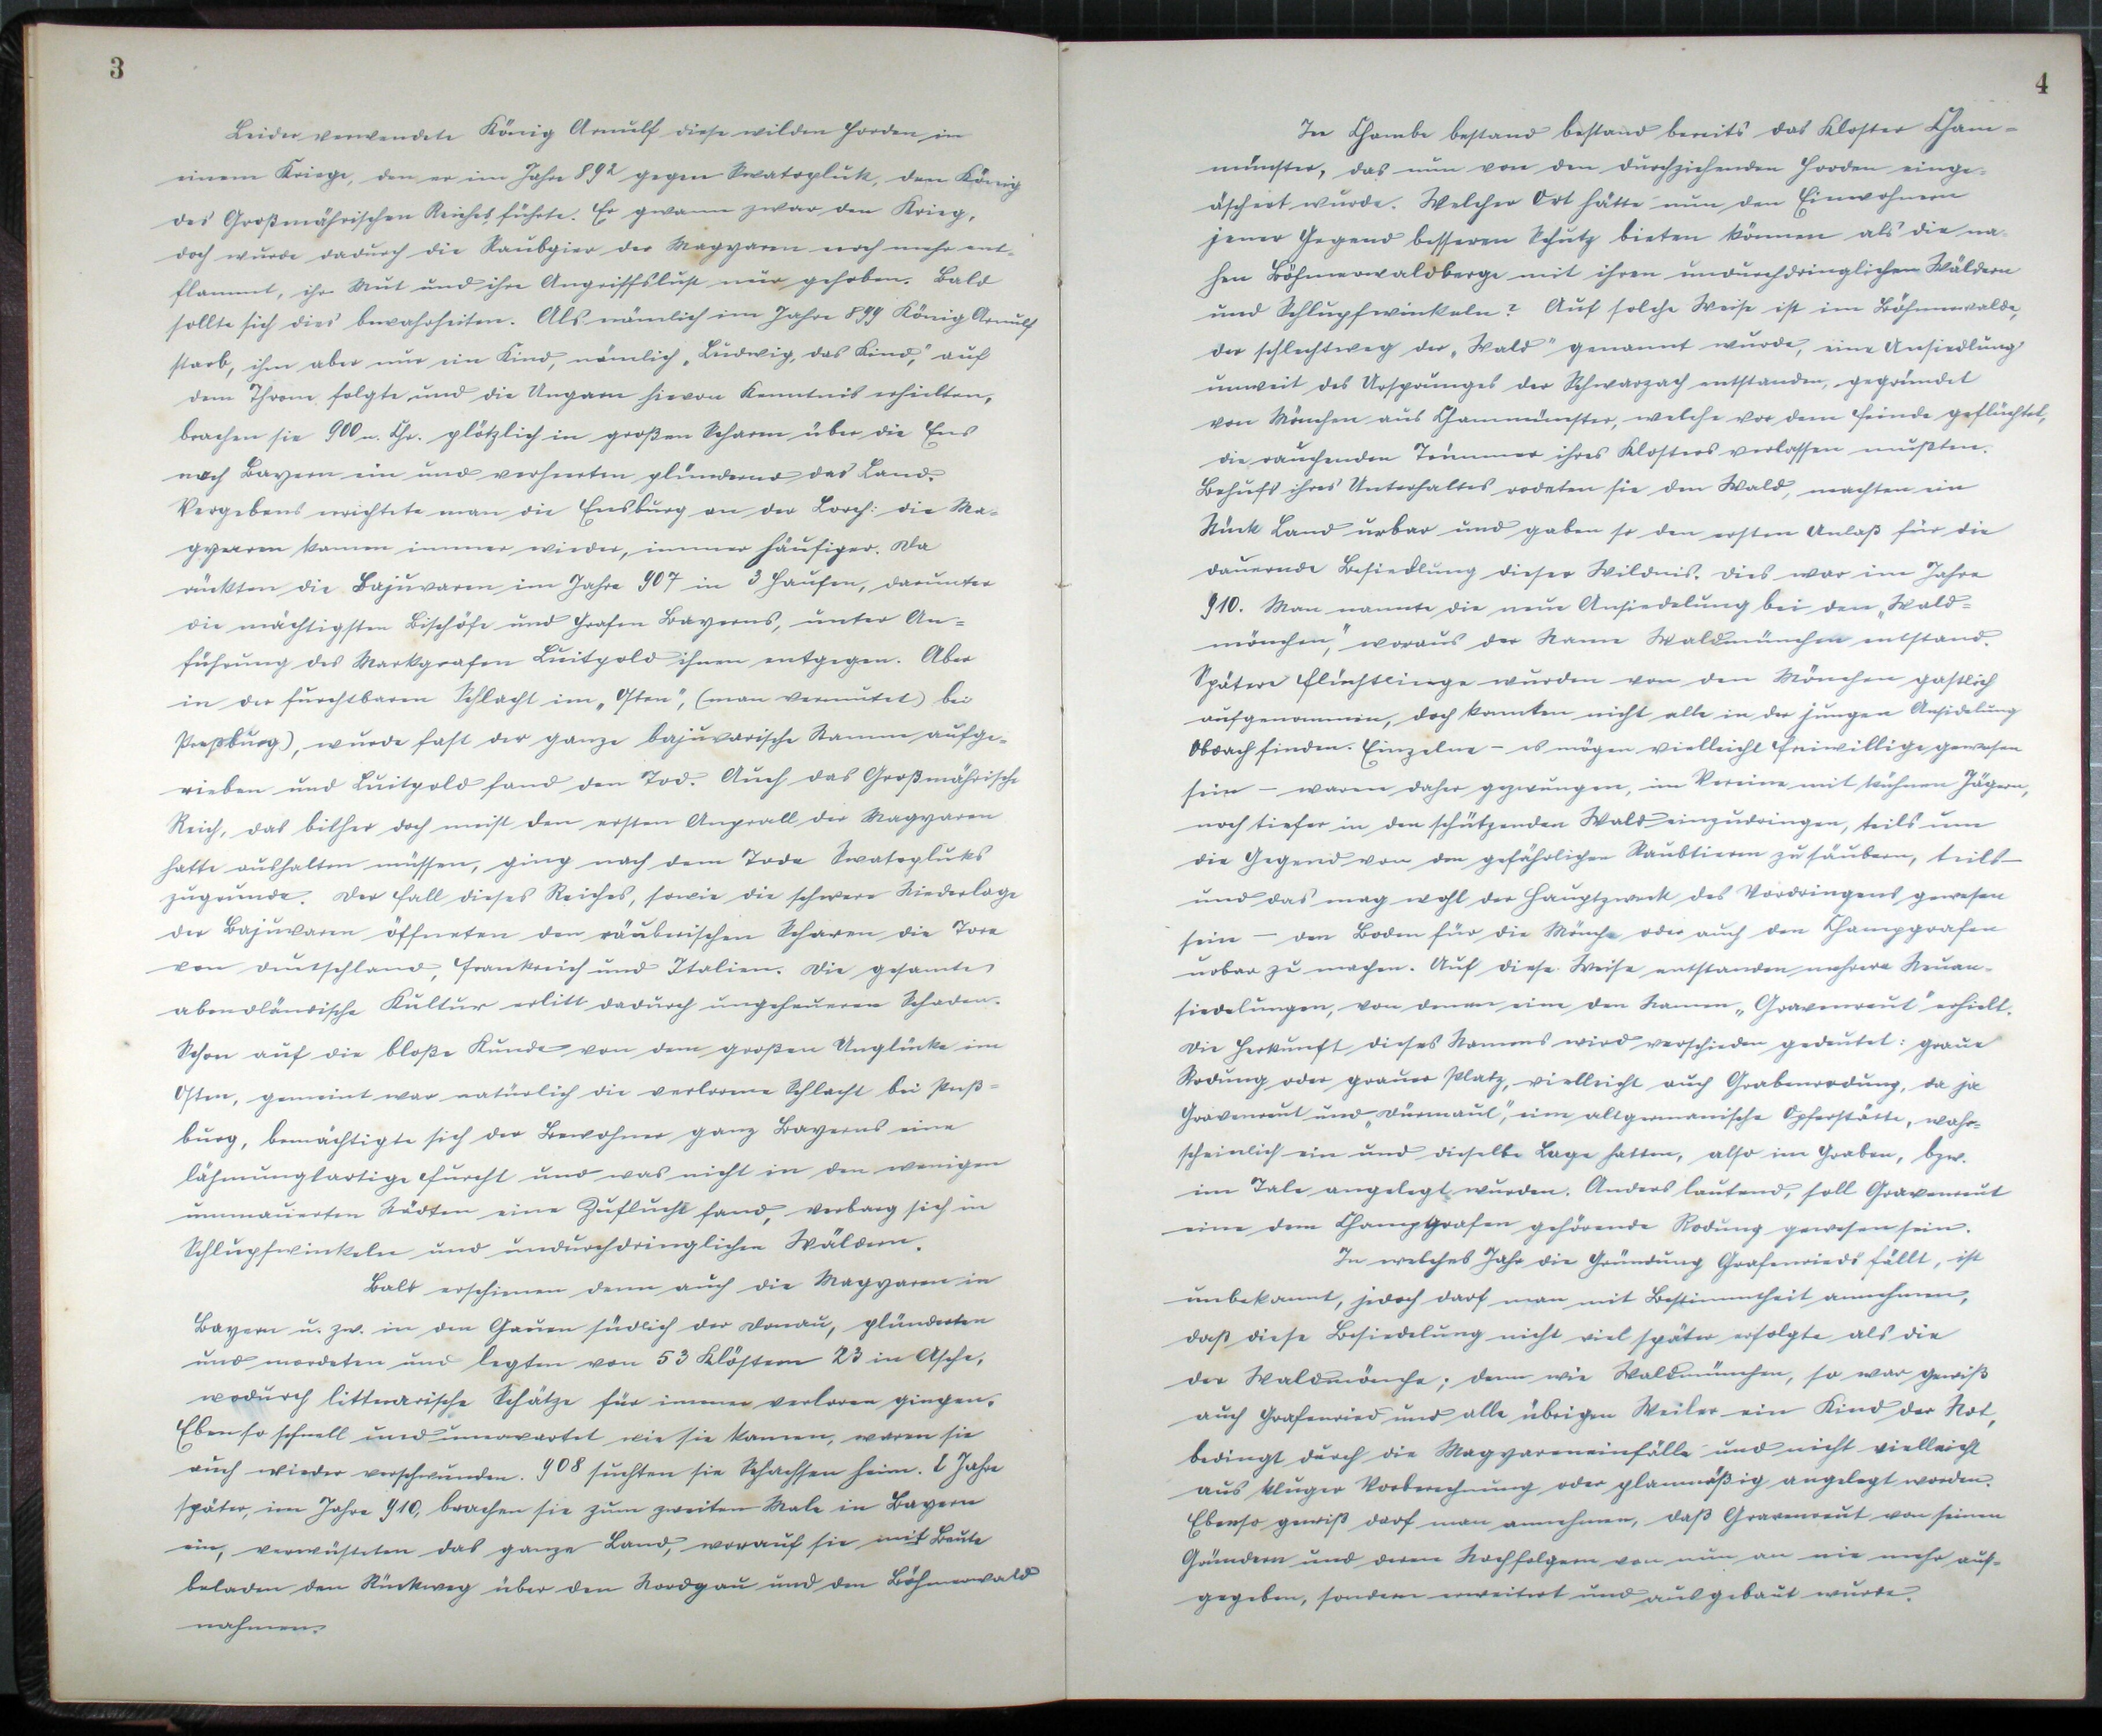 3
Leider verwendete König Arnulf diese wilden Horden in
einem Kriege, den er im Jahre 892 gegen Swatopluk, den König
des Großmährischen Reiches führte. Er gewann zwar den Krieg,
doch wurde dadurch die Raubgier der Magyaren noch mehr ent-
flammt, ihr Mut und ihre Angriffslust nur gehoben. Bald
sollte sich dies bewahrheiten. Als nämlich im Jahre 899 König Arnulf
starb, ihm aber nur ein Kind, nämlich „Ludwig, das Kind,“ auf
dem Throne folgte und die Ungarn hievon Kenntnis erhielten,
brachen sie 900 n. Chr. plötzlich in großen Scharen über die Ens
nach Bayern ein und verheerten plündernd das Land.
Vergebens errichtete man die Ensburg an der Lorch: die Ma-
gyaren kamen immer wieder, immer häufiger. Da
rückten die Bajuwaren im Jahre 907 in 3 Haufen, darunter
die mächtigsten Bischöfe und Grafen Bayerns, unter An-
führung des Markgrafen Luitpold ihnen entgegen. Aber
in der furchtbaren Schlacht im „Osten“, (man vermutet) bei
Preßburg), wurde fast der ganze bajuvarische Stamm aufge-
rieben und Luitpold fand den Tod. Auch das Großmährische
Reich, das bisher doch meist den ersten Anprall der Magyaren
hatte aushalten müssen, ging nach dem Tode Swatopluks
zugrunde. Der Fall dieses Reiches, sowie die schwere Niederlage
der Bajuvaren öffneten den räuberischen Scharen die Tore
von Deutschland, Frankreich und Italien. Die gesamte
abendländische Kultur erlitt dadurch ungeheueren Schaden.
Schon auf die bloße Kunde von dem großen Unglücke im
Osten, gemeint war natürlich die verlorene Schlacht bei Preß-
burg, bemächtigte sich der Bewohner ganz Bayerns eine
lähmungsartige Furcht und was nicht in den wenigen
ummauerten Städten eine Zuflucht fand, verbarg sich in
Schlupfwinkeln und undurchdringlichen Wäldern.
Bald erschienen denn auch die Magyaren in
Bayern u. zw. in den Gauen südlich der Donau, plünderten
und mordeten und legten von 53 Klöstern 23 in Asche,
wodurch litterarische Schätze für immer verloren gingen.
Ebenso schnell und unerwartet wie sie kamen, waren sie
auch wieder verschwunden. 908 suchten sie Schachsen heim. 2 Jahre
später, im Jahre 910, brachen sie zum zweiten Male in Bayern
ein, verwüsteten das ganze Land, worauf sie mit Beute
beladen den Rückweg über den Nordgau und den Böhmerwald
nahmen.
4
In Chambe bestand bestand bereits das Kloster Cham-
münster, das nun von den durchziehenden Horden einge-
äschert wurde. Welcher Ort hätte nun den Einwohnern
jener Gegend besseren Schutz bieten können als die na-
hen Böhmerwaldberge mit ihren undurchdringlichen Wäldern
und Schlupfwinkeln? Auf solche Weise ist im Böhmerwalde,
der schlechtweg der „Wald“ genannt wurde, eine Ansiedlung
unweit des Ursprunges der Schwarzach entstanden, gegründet
von Mönchen aus Chammünster, welche vor dem Feinde geflüchtet,
die rauchenden Trümmer ihres Klosters verlassen mußten.
Behufs ihres Unterhaltes rodeten sie den Wald, machten ein
Stück Land urbar und gaben so den ersten Anlaß für die
dauernde Besiedlung dieser Wildnis. Dies war im Jahre
910. Man nannte die neue Ansiedelung bei den „Wald-
mönchen,“ woraus der Name Waldmünchen entstand.
Spätere Flüchtlinge wurden von den Mönchen gastlich
aufgenommen, doch konnten nicht alle in der jungen Ansidelung
Obdach finden. Einzelne – es mögen vielleicht Freiwillige gewesen
sein – waren daher gezwungen, im Vereine mit kühnen Jägern,
noch tiefer in den schützenden Wald einzudringen, teils um
die Gegend von den gefährlichen Raubtieren zu säubern, teils –
und das mag wohl der Hauptzweck des Vordringens gewesen
sein – den Boden für die Mönche oder auch den Champgrafen
urbar zu machen. Auf diese Weise entstanden mehrere Neuan-
siedelungen, von denen eine den Namen „Gravenreut“ erhielt.
Die Herkunft dieses Namens wird verschieden gedeutet: graue
Rodung oder grauer Platz, vielleicht auch Grabenrodung, da ja
Gravenreut und „Dürmaul“, eine altgermanische Opferstätte, wahr-
scheinlich ein und dieselbe Lage hatten, also im Graben, bzw.
im Tale angelegt wurden. Anders lautend, soll Gravenreut
eine dem Champgrafen gehörende Rodung gewesen sein.
In welches Jahr die Gründung Grafenrieds fällt, ist
unbekannt, jedoch darf man mit Bestimmtheit annehmen,
daß diese Besiedelung nicht viel später erfolgte als die
der Waldmönche; denn wie Waldmünchen, so war gewiß
auch Grafenried und alle übrigen Weiler ein Kind der Not,
bedingt durch die Magyareneinfälle und nicht vielleicht
aus kluger Vorberechnung oder planmäßig angelegt worden.
Ebenso gewiß darf man annehmen, daß Gravenreut von seinen
Gründern und deren Nachfolgern von nun an nie mehr auf-
gegeben, sondern erweitert und ausgebaut wurde.